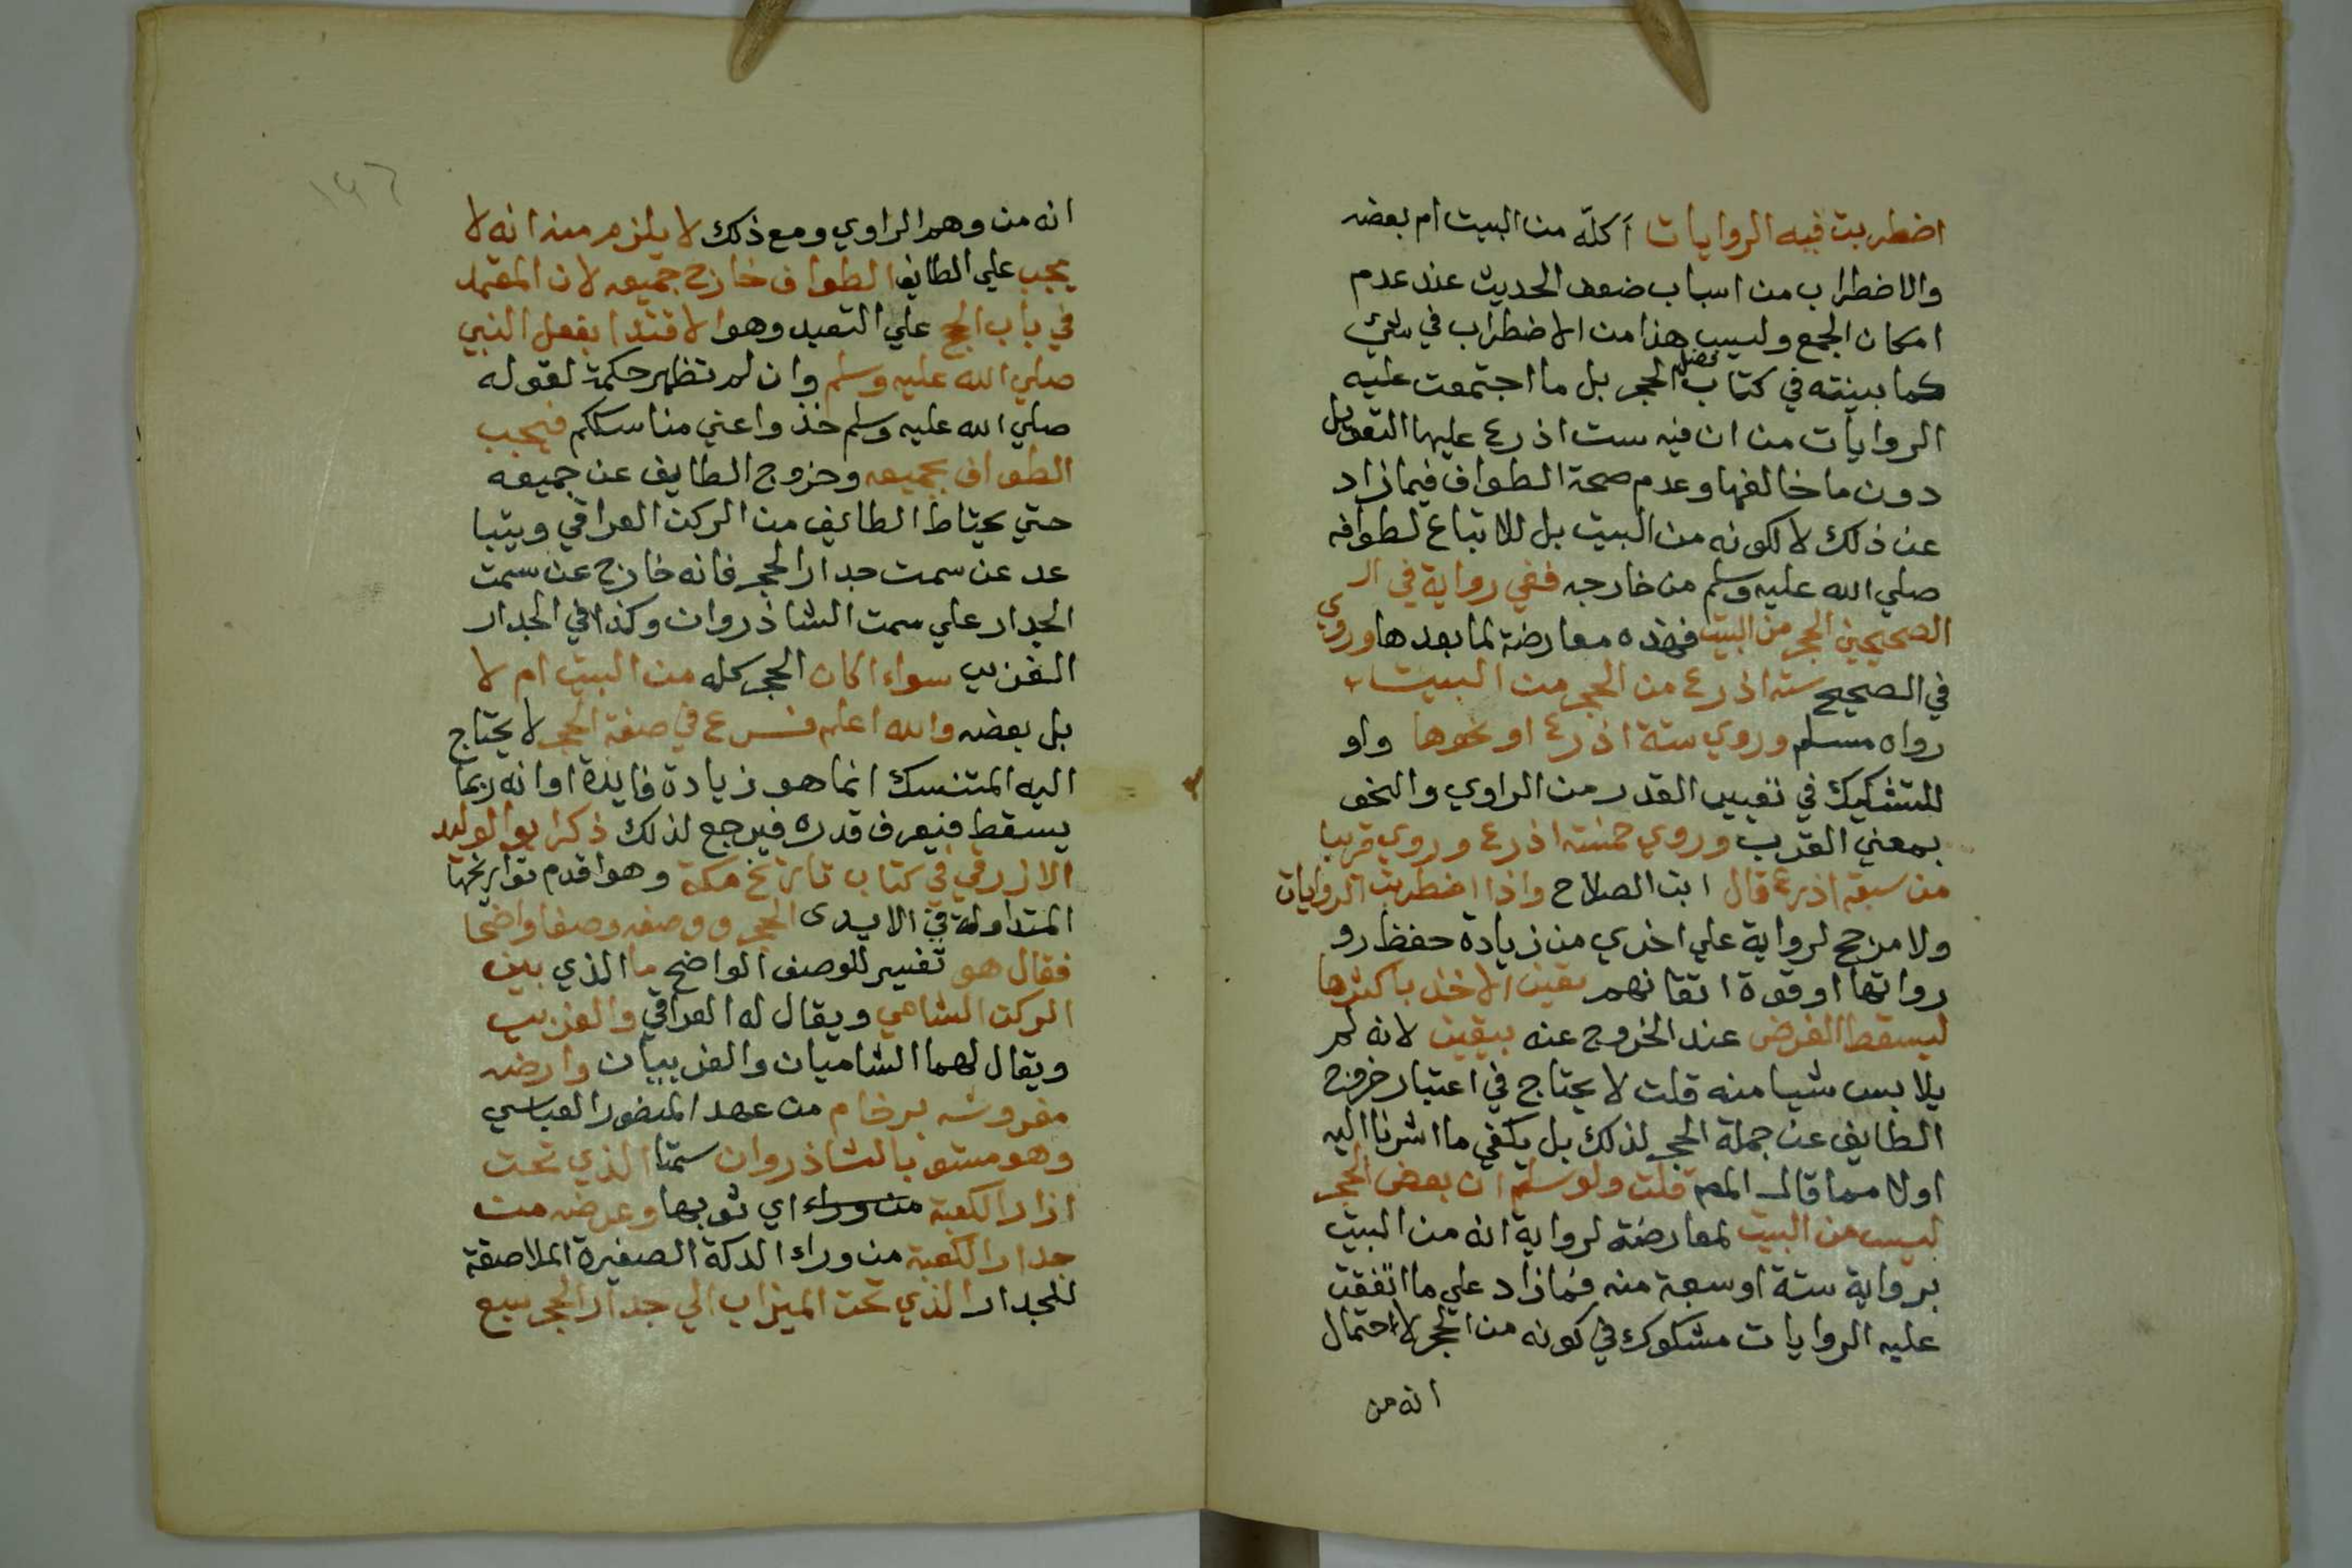 اضطربت فيه الروايات أكلّه من البيت ام بعضه
والاضطراب من اسباب ضعف الحديث عند عدم
امكان الجمع وليس هذا من الاضطراب في شيء
كما بينته في كتاب فضل الحجر بل ما اجتمعت عليه
الروايات من ان فيه ست اذرع عليها التعويل
دون ما خالفها وعدم صحة الطواف فيما زاد
عن ذلك لا لكونه من البيت بل للاتباع لطوافه
صلي الله عليه وسلم من خارجه ففي رواية في ال
الصحيحين الحجر من البيت فهذه معارضة لما بعدها وروي
في الصحيح ستة اذرع من الحجر من البيت
رواه مسلم وروي ستة اذرع او نحوها واو
للتشكيك في تعيين القدر من الراوي والنحو
بمعني القرب وروي خمسة اذرع وروي قريبا
من سبعة اذرع قال ابن الصلاح واذا اضطربت الروايات
ولا مرجح لرواية علي اخري من زيادة حفظ رو
رواتها او قوة اتقانهم تعين الاخذ باكثرها
ليسقط الفرض عند الخروج عنه بيقين لانه لم
يلابس شيا منه قلت لا يحتاج في اعتبار خروج
الطايف عن جملة الحجر لذلك بل يكفي ما اشرنا اليه
اولا مما قال المص قلت ولو سلم ان بعض الحجر
ليس من البيت لمعارضة لرواية انه من البيت
برواية ستة او سبعة منه فما زاد علي ما اتفقت
عليه الروايات مشكوك في كونه من الحجر لاحتمال
انه من
١٩٦
انه من وهم الراوي ومع ذلك لا يلزم منه انه لا
يجب علي الطايف الطواف خارج جميعه لان المعتمد
في باب الحج علي التعبد وهو الاقتدا بفعل النبي
صلي الله عليه وسلم وان لم تظهر حكمة لقوله
صلي الله عليه وسلم خذوا عني مناسككم فيجب
الطواف بجميعه وخروج الطايف عن جميعه
حتي يحتاط الطايف من الركن العراقي ويتبا
عد عن سمت جدار الحجر فانه خارج عن سمت
الجدار علي سمت الشاذروان وكذا في الجدار
الغربي سواء اكان الحجر كله من البيت ام لا
بل بعضه والله اعلم فرع في صفة الحجر لا يحتاج
اليه المتنسك انما هو زيادة فايدة او انه ربما
يسقط فيعرف قدره فيرجع لذلك ذكر ابو الوليد
الازرقي في كتاب تاريخ مكة وهو اقدم تواريخها
المتداولة في الايدى الحجر ووصفه وصفا واضحا
فقال هو تفسير للوصف الواضح ما الذي بين
الركن الشامي ويقال له العراقي والغربي
ويقال لهما الشاميان والغربيان وارضه
مفروشه برخام من عهد المنصور العباسي
وهو مستو بالشاذروان سمتا الذي تحت
ازار الكعبة من وراء اي ثوبها وعرضه من
جدار الكعبة من وراء الدكة الصغيرة الملاصقة
للجدار الذي تحت الميزاب الي جدار الحجر سبع